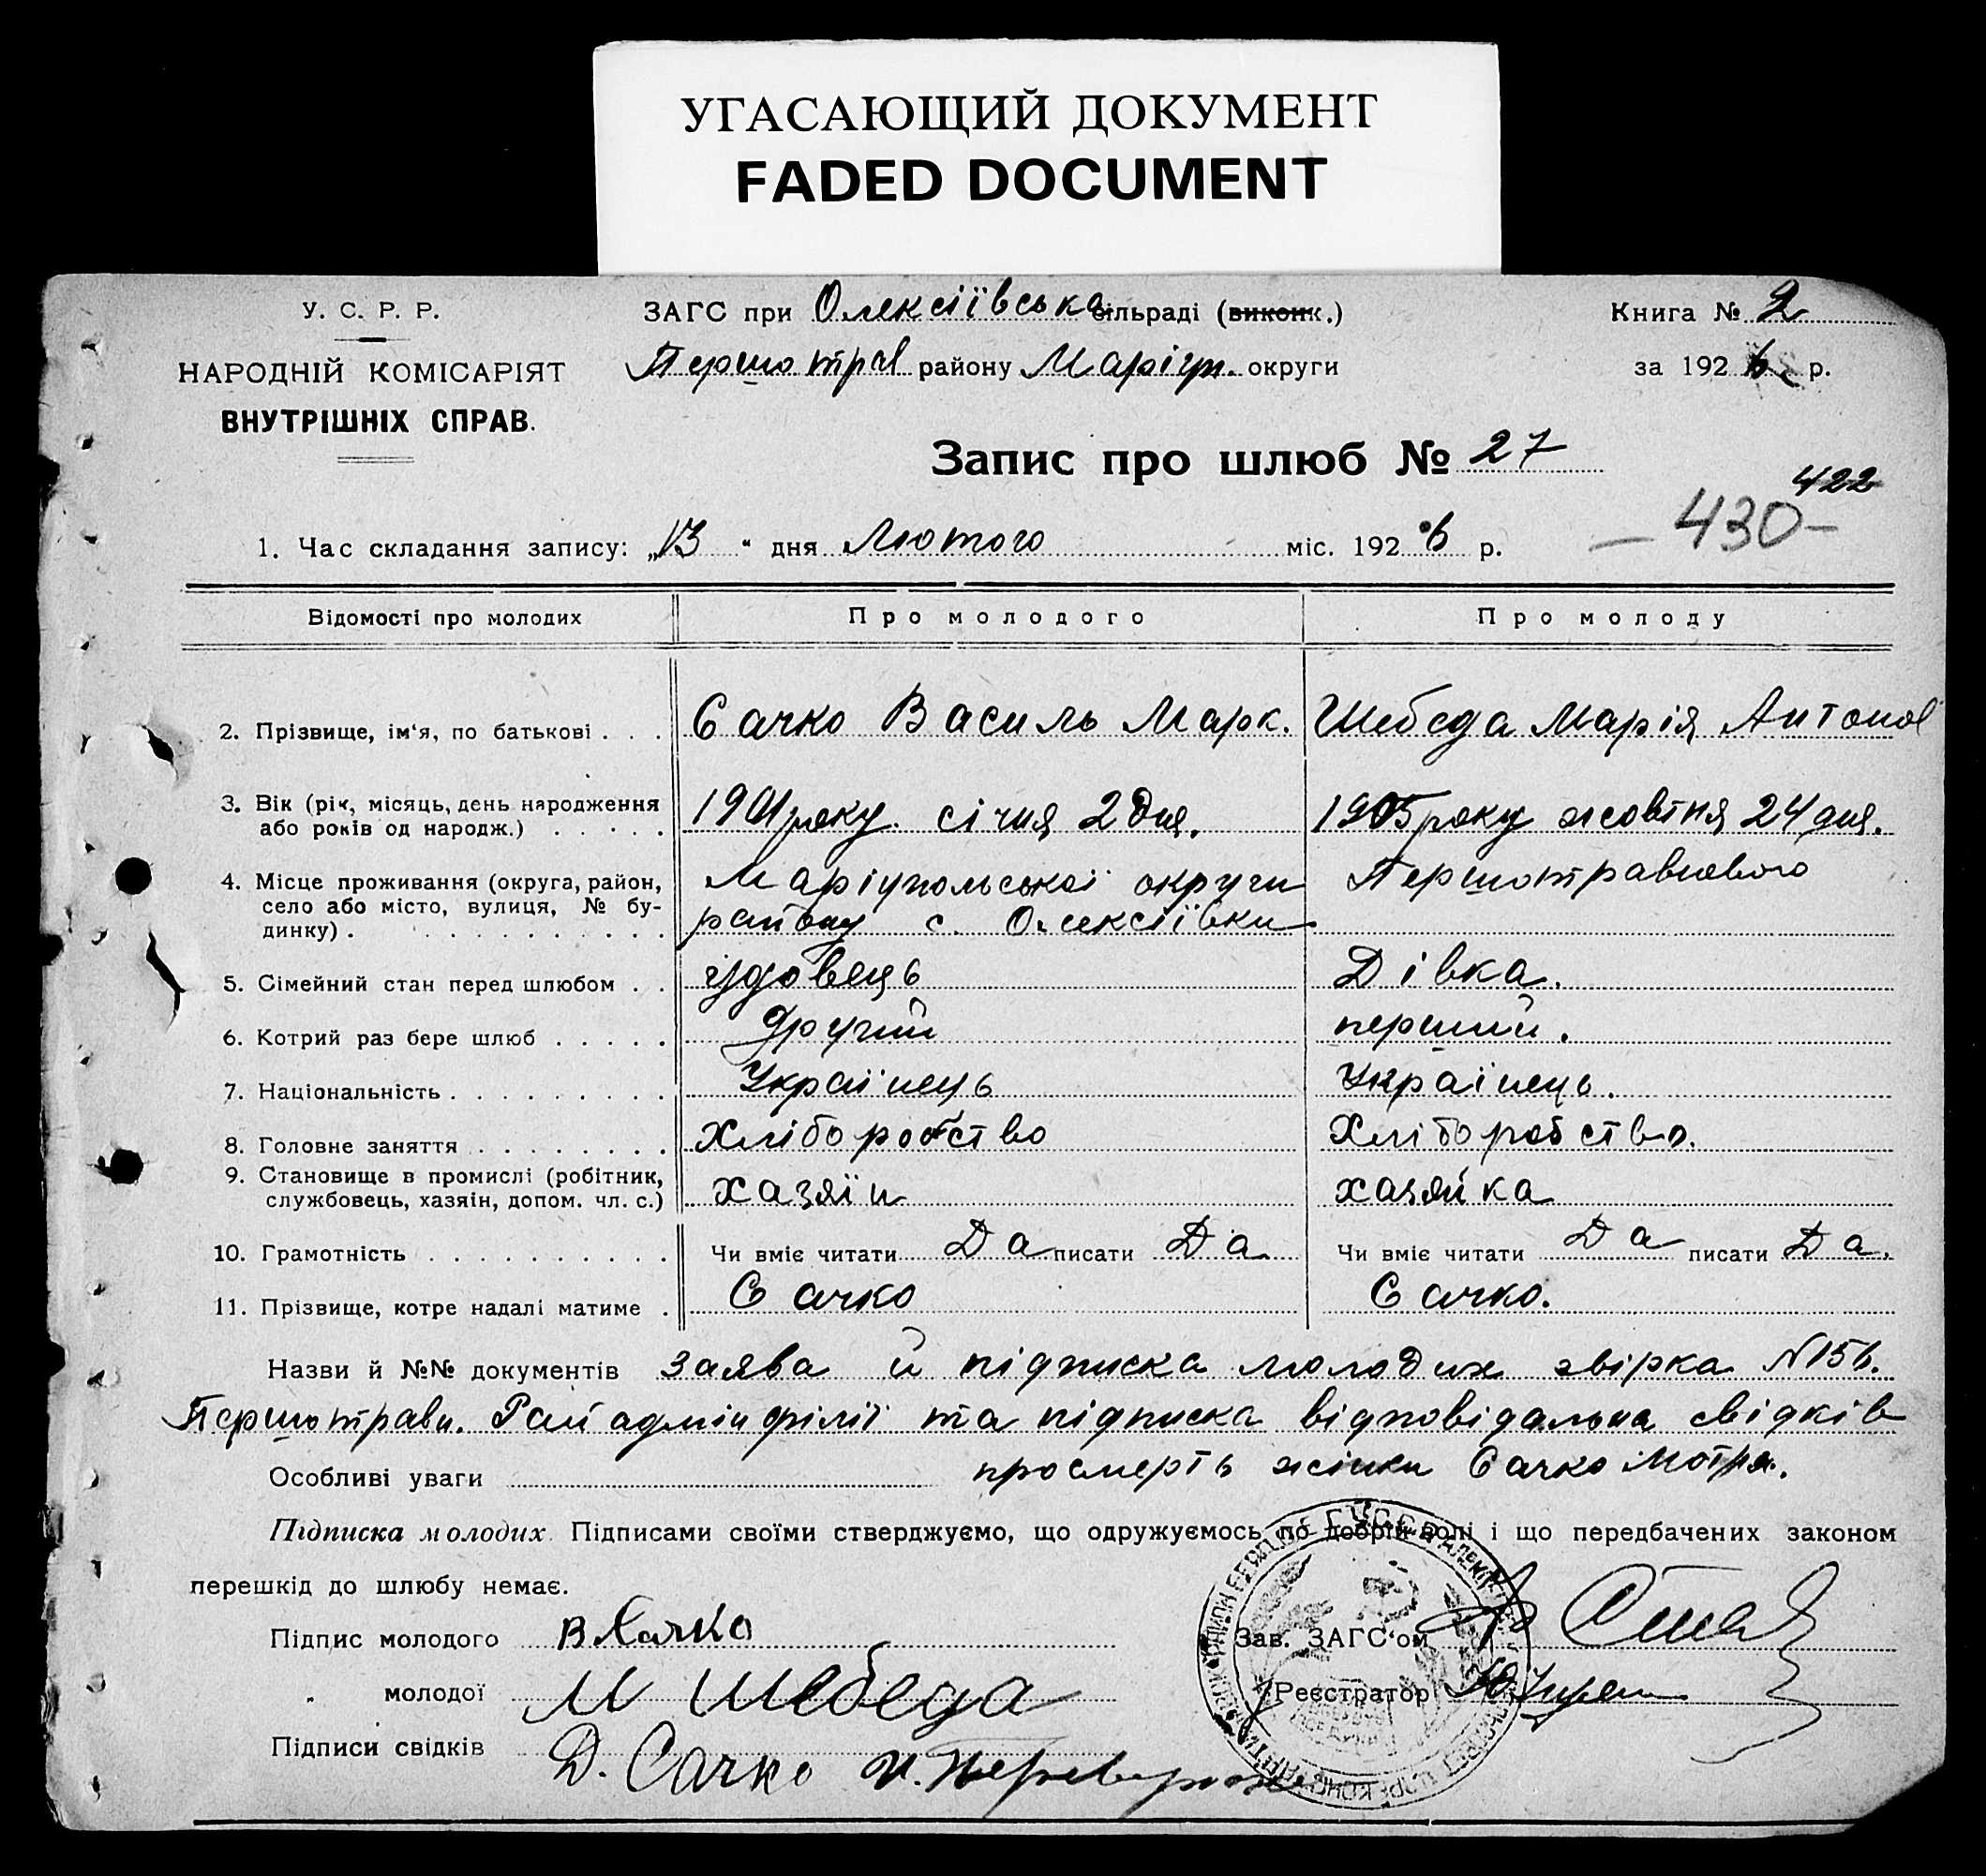 УГАСАЮЩИЙ ДОКУМЕНТ
FADED DOCUMENT
У. С. Р. Р.
НАРОДНІЙ КОМІСАРІЯТ
ВНУТРІШНІХ СПРАВ.
ЗАГС при Олексіївська сільраді (виконк.)
Першотрав району Маріуп. округи
Книга № 2
за 1926 р.
Запис про шлюб № 27
422
— 430 —
1. Час складання запису: „13“ дня Лютого міс. 1926 р.
Відомості про молодих Про молодого Про молоду
2. Прізвище, ім'я, по батькові . . . Сачко Василь Марк. Шебеда Марія Антонов
3. Вік (рік, місяць, день народження
або років од народж.) . . . . . 1901 року. січня 2 дня. 1905 року жовтня 24 дня.
4. Місце проживання (округа, район, Маріупольської округи Першотравневого
село або місто, вулиця, № бу-
динку) . . . . . . . . . . . району с. Олексіївки
5. Сімейний стан перед шлюбом . . удовець Дівка.
6. Котрий раз бере шлюб . . . . . другий перший.
7. Національність . . . . . . . . . Українець Українець.
8. Головне заняття . . . . . . . . Хліборобство Хліборобство.
9. Становище в промислі (робітник,
службовець, хазяін, допом. чл. с.) хазяїн хазяйка
10. Грамотність . . . . . . . . . . Чи вміє читати Да писати Да Чи вміє читати Да писати Да.
11. Прізвище, котре надалі матиме . Сачко Сачко.
Назви й №№ документів заява й підписка молодих звірка №156.
Першотравн. Рай адмін філії та підписка відповідальна свідків
Особливі уваги про смерть жінки Сачко Мотря.
Підписка молодих. Підписами своїми стверджуємо, що одружуємось по добрій волі і що передбачених законом
перешкід до шлюбу немає.
Підпис молодого В Сачко Зав. ЗАГС'ом
„ молодої М Шебеда Реєстратор
Підписи свідків Д. Сачко